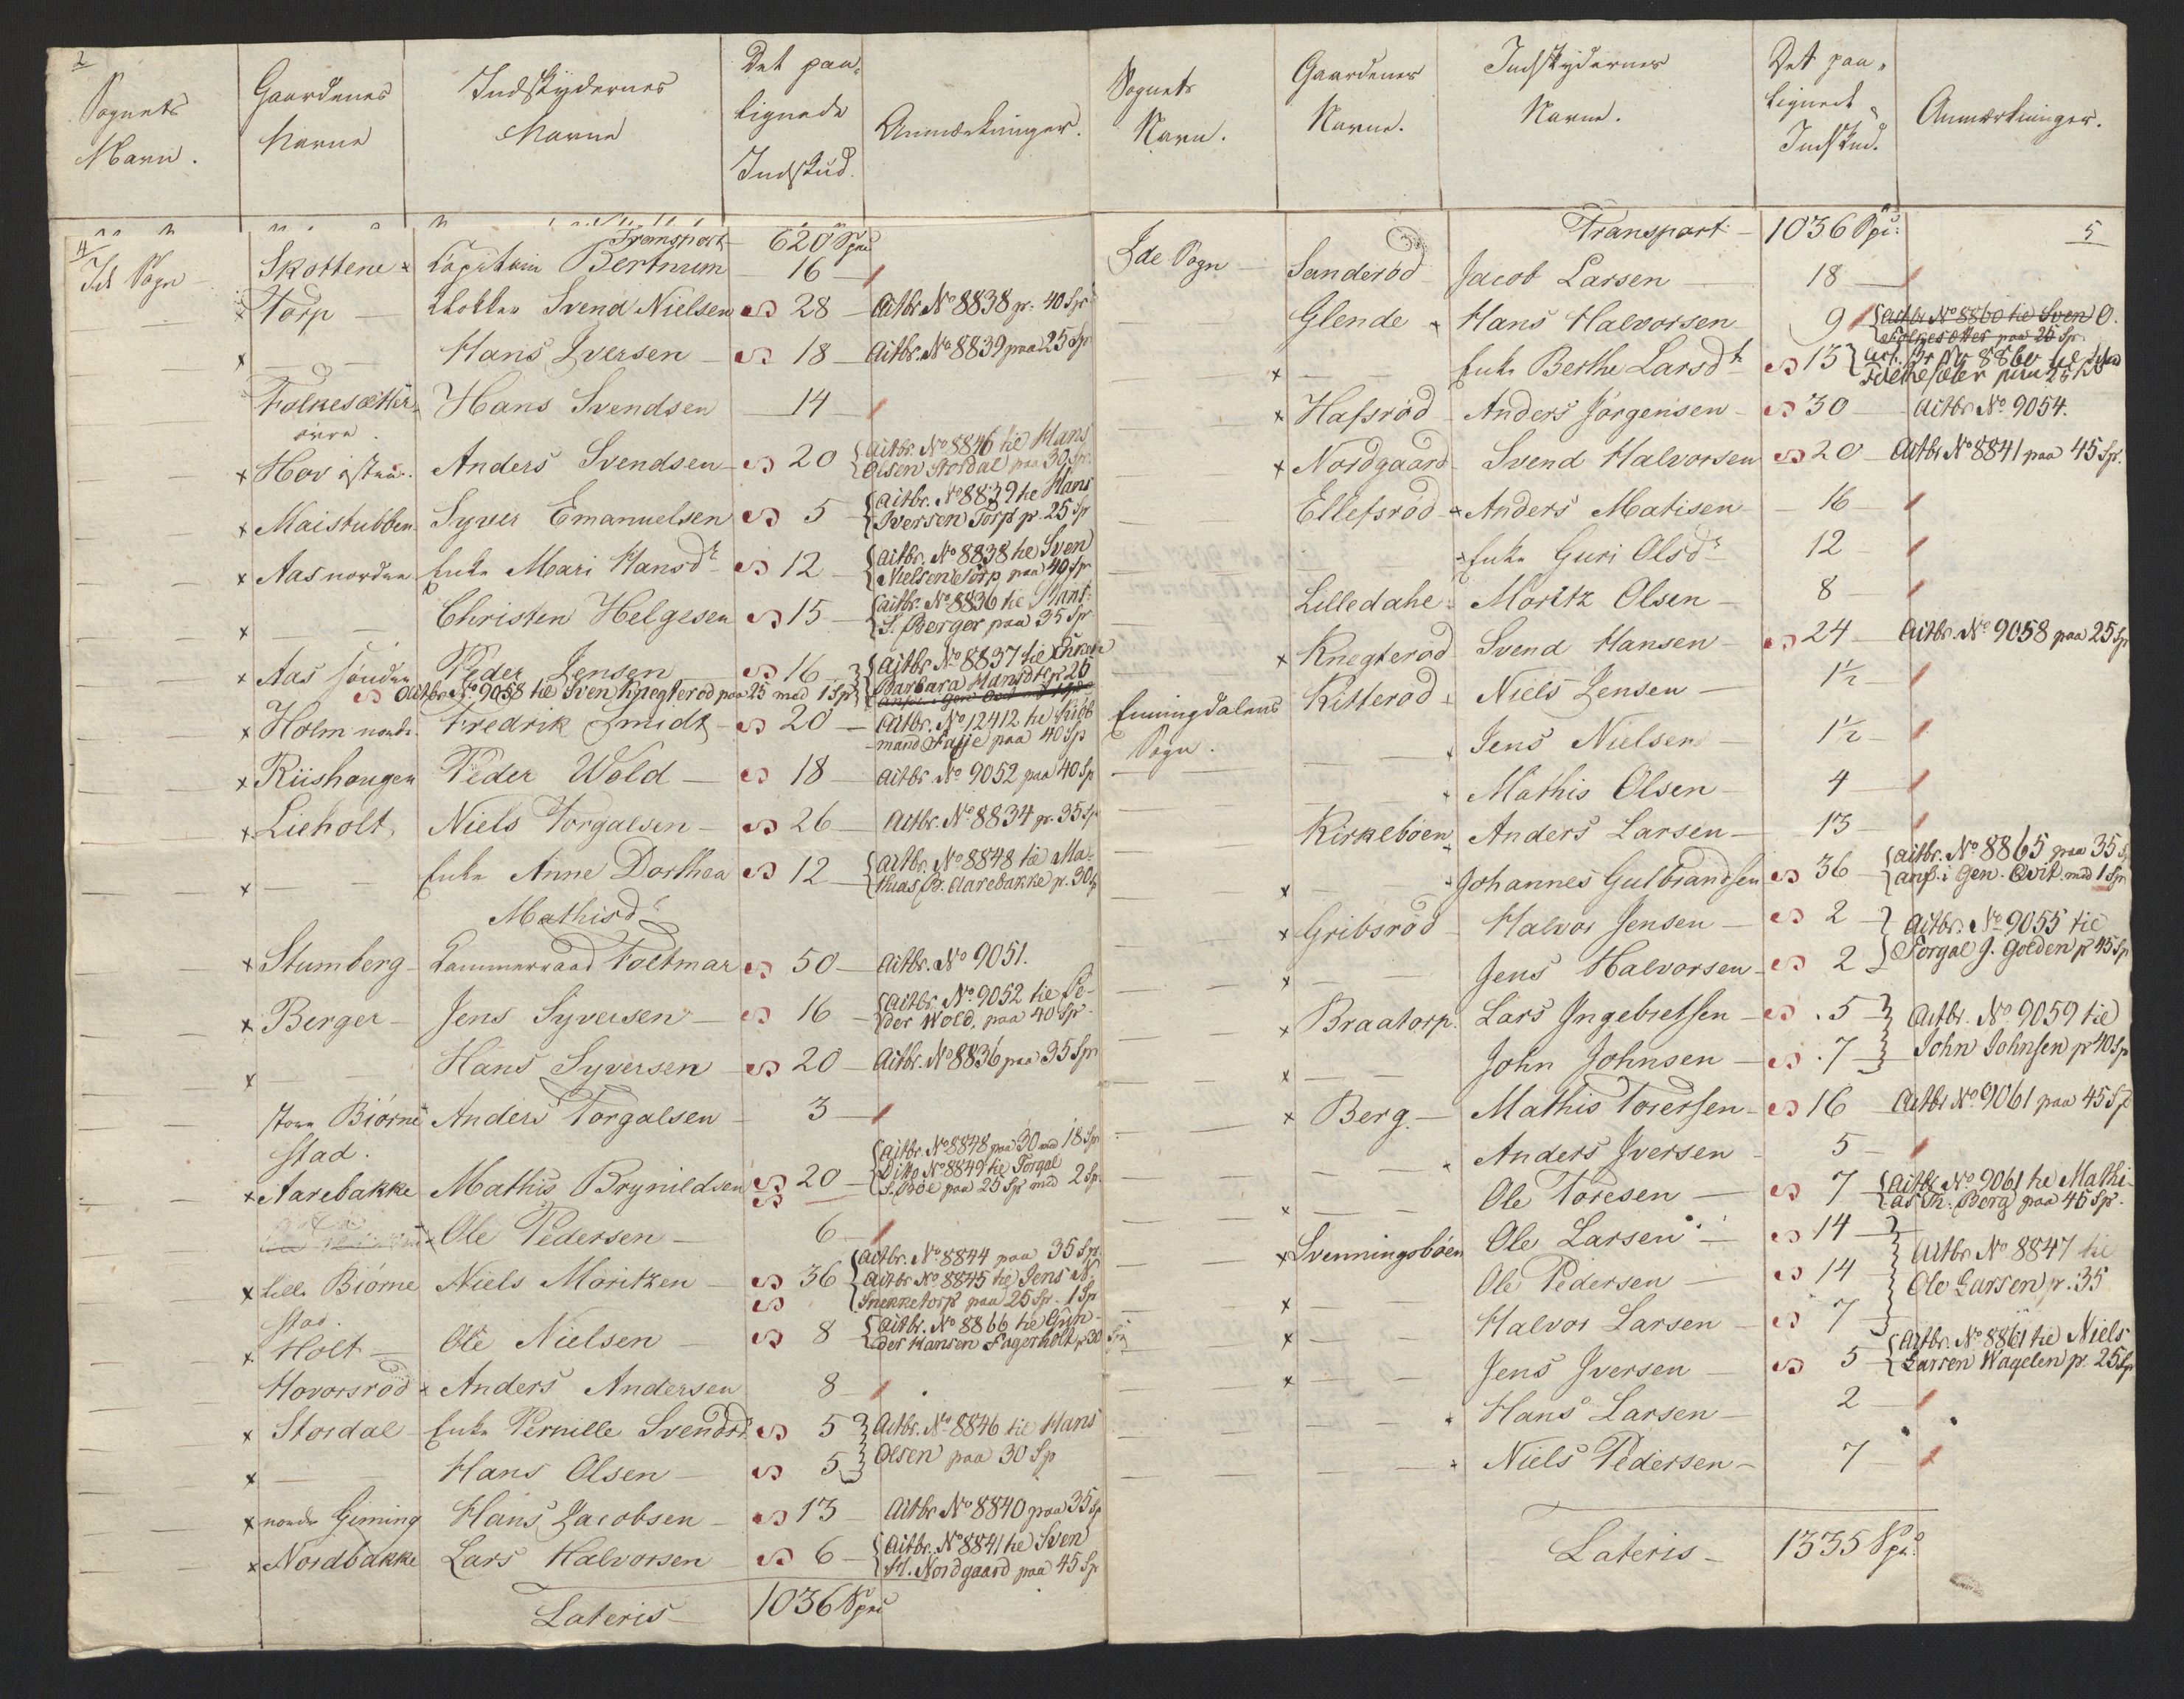 2
Sognets Navn. Gaardenes Navne Indskydernes Navne Det paalignede Indskud. Anmærkninger.
4
Transport 620 Spd
Id Sogn Skottene x Capitain Bertrum 16
x Torp Svend Nielsen 28 Actbr. No 8838 pr. 40 Sp
x Hans Iversen 18 Actbr. No 8839 paa 25 Sp
Folkesætter øvre Hans Svendsen 14
x Hov østre. Anders Svendsen 20 Actbr. No 8846 til Hans
Olsen Stordal paa 30 Sp.
x Maistubben Syver Emanuelsen 5 Actbr. No 8839 til Hans
Iversen Torp p. 25 Sp
x Aas nordre Enke Mari Hansdr 12 Actbr. No 8838 til Sven
Nielsen Torp paa 40 Sp
x Christen Helgesen 15 Actbr. No 8836 til Hans
S. Berger paa 35 Sp
x Aas søndre Peder Jensen 16 Actbr. No 8837 til Enken
Barbara Hansdtr p 25
Actbr. No 9058 til Sven Knegterød paa 25 med 1 Sp
x Holm nordr. Fredrik Smidt 20 Actbr. No 12412 til Kiøb
mand Faye paa 40 Sp
x Riishaugen Peder Wold 18 Actbr No 9052 paa 40 Sp
x Lieholt Niels Torgalsen 26 Actbr. No 8834 pr. 35 Sp
x Enke Anne Dorthea 12 Actbr. No 8848 til Ma-
thias B. Aarebakke p. 30 Sp
Mathisdr
x Stumberg Kammerraad Toltmar 50 Actbr. No 9051.
x Berger Jens Syversen 16 Actbr. No 9052 til Pe-
der Wold, paa 40 Sp
x Hans Syversen 20 Actbr. No 8836 paa 35 Sp
store Biørne Anders Torgalsen 3
stad.
x Aarebakke Mathis Brynildsen 20 Actbr. No 8848 paa 30 med 18 Sp
Ditto No 8849 til Torgal
S. Bøe paa 25 Sp med 2 Sp.
Ole Pedersen 6
x Lille Biørne Niels Moritzen 36 Actbr. No 8844 paa 35 Sp.
Actbr No 8845 til Jens N.
Snekketorp paa 25 Sp. 1 Sp
stad.
x Holt Ole Nielsen 8 Actbr. No 8866 til Gun-
der Hansen Fagerholt p 30 Sp
Hovorsrød x Anders Andersen 8
x Stordal Enke Pernille Svendsdr 5 Actbr. No 8846 til Hans
x Hans Olsen 5 Olsen paa 30 Sp
x nordre Giming Hans Jacobsen 13 Actbr No 8840 paa 35 Sp
x Nordbakke Lars Halvorsen 6 Actbr. No 8841 til Sven
H. Nordgaard paa 45 Sp
Lateris 1036 Spd
Sognets Navn. Gaardenes Navne. Indskydernes Navne. Det paalignede Indskud. Anmærkninger.
5
Transport 1036 Spd:
Ide Sogn Sanderød Jacob Larsen 18
Glende x Hans Halvorsen 9 Actbr No 8860 til Sven O.
Folkesætter paa 25 Sp.
x Enke Berthe Larsdtr 13 No 8860 til
x Hafsrød Anders Jørgensen 30 Actbr No 9054.
x Nordgaard Svend Halvorsen 20 Actbr No 8841 paa 45 Sp.
Ellefsrød x Anders Matisen 16
Enke Guri Olsdr 12
Lilledahe Moritz Olsen 8
x Knegterød Svend Hansen 24 Actbr. No 9058 paa 25 Sp
Enningdalens Sogn. Kitterød Niels Jensen 1½
Jens Nielsen 1½
Mathis Olsen 4
Kirkebøen Anders Larsen 13
x Johannes Gulbrandsen 36 Actbr. No 8865 paa 35 Sp
anf. i Gen. Qvit. med 1 Sp
x Gribsrød Halvor Jensen 2 Actbr. No 9055 til
x Jens Halvorsen 2 Torgal J. Golden p 45 Sp
x Braatorp. Lars Ingebretsen 5 Actbr. No 9059 til
x John Johnsen 7 John Johnsen p 40 Sp
x Berg Mathis Torersen 16 Actbr No 9061 paa 45 Sp
Anders Iversen 5
x Ole Toresen 7 Actbr No 9061 til Mathi-
as Th. Berg paa 45 Sp.
x Svenningsbøen Ole Larsen 14 Actbr No 8847 til
x Ole Pedersen 14 Ole Larsen p. 35
x Halvor Larsen 7
x Jens Iversen 5 Actbr. No 8861 til Niels
Larsen Wagelen p. 25 Sp
Hans Larsen 2
Niels Pedersen 7
Lateris 1335 Spd.